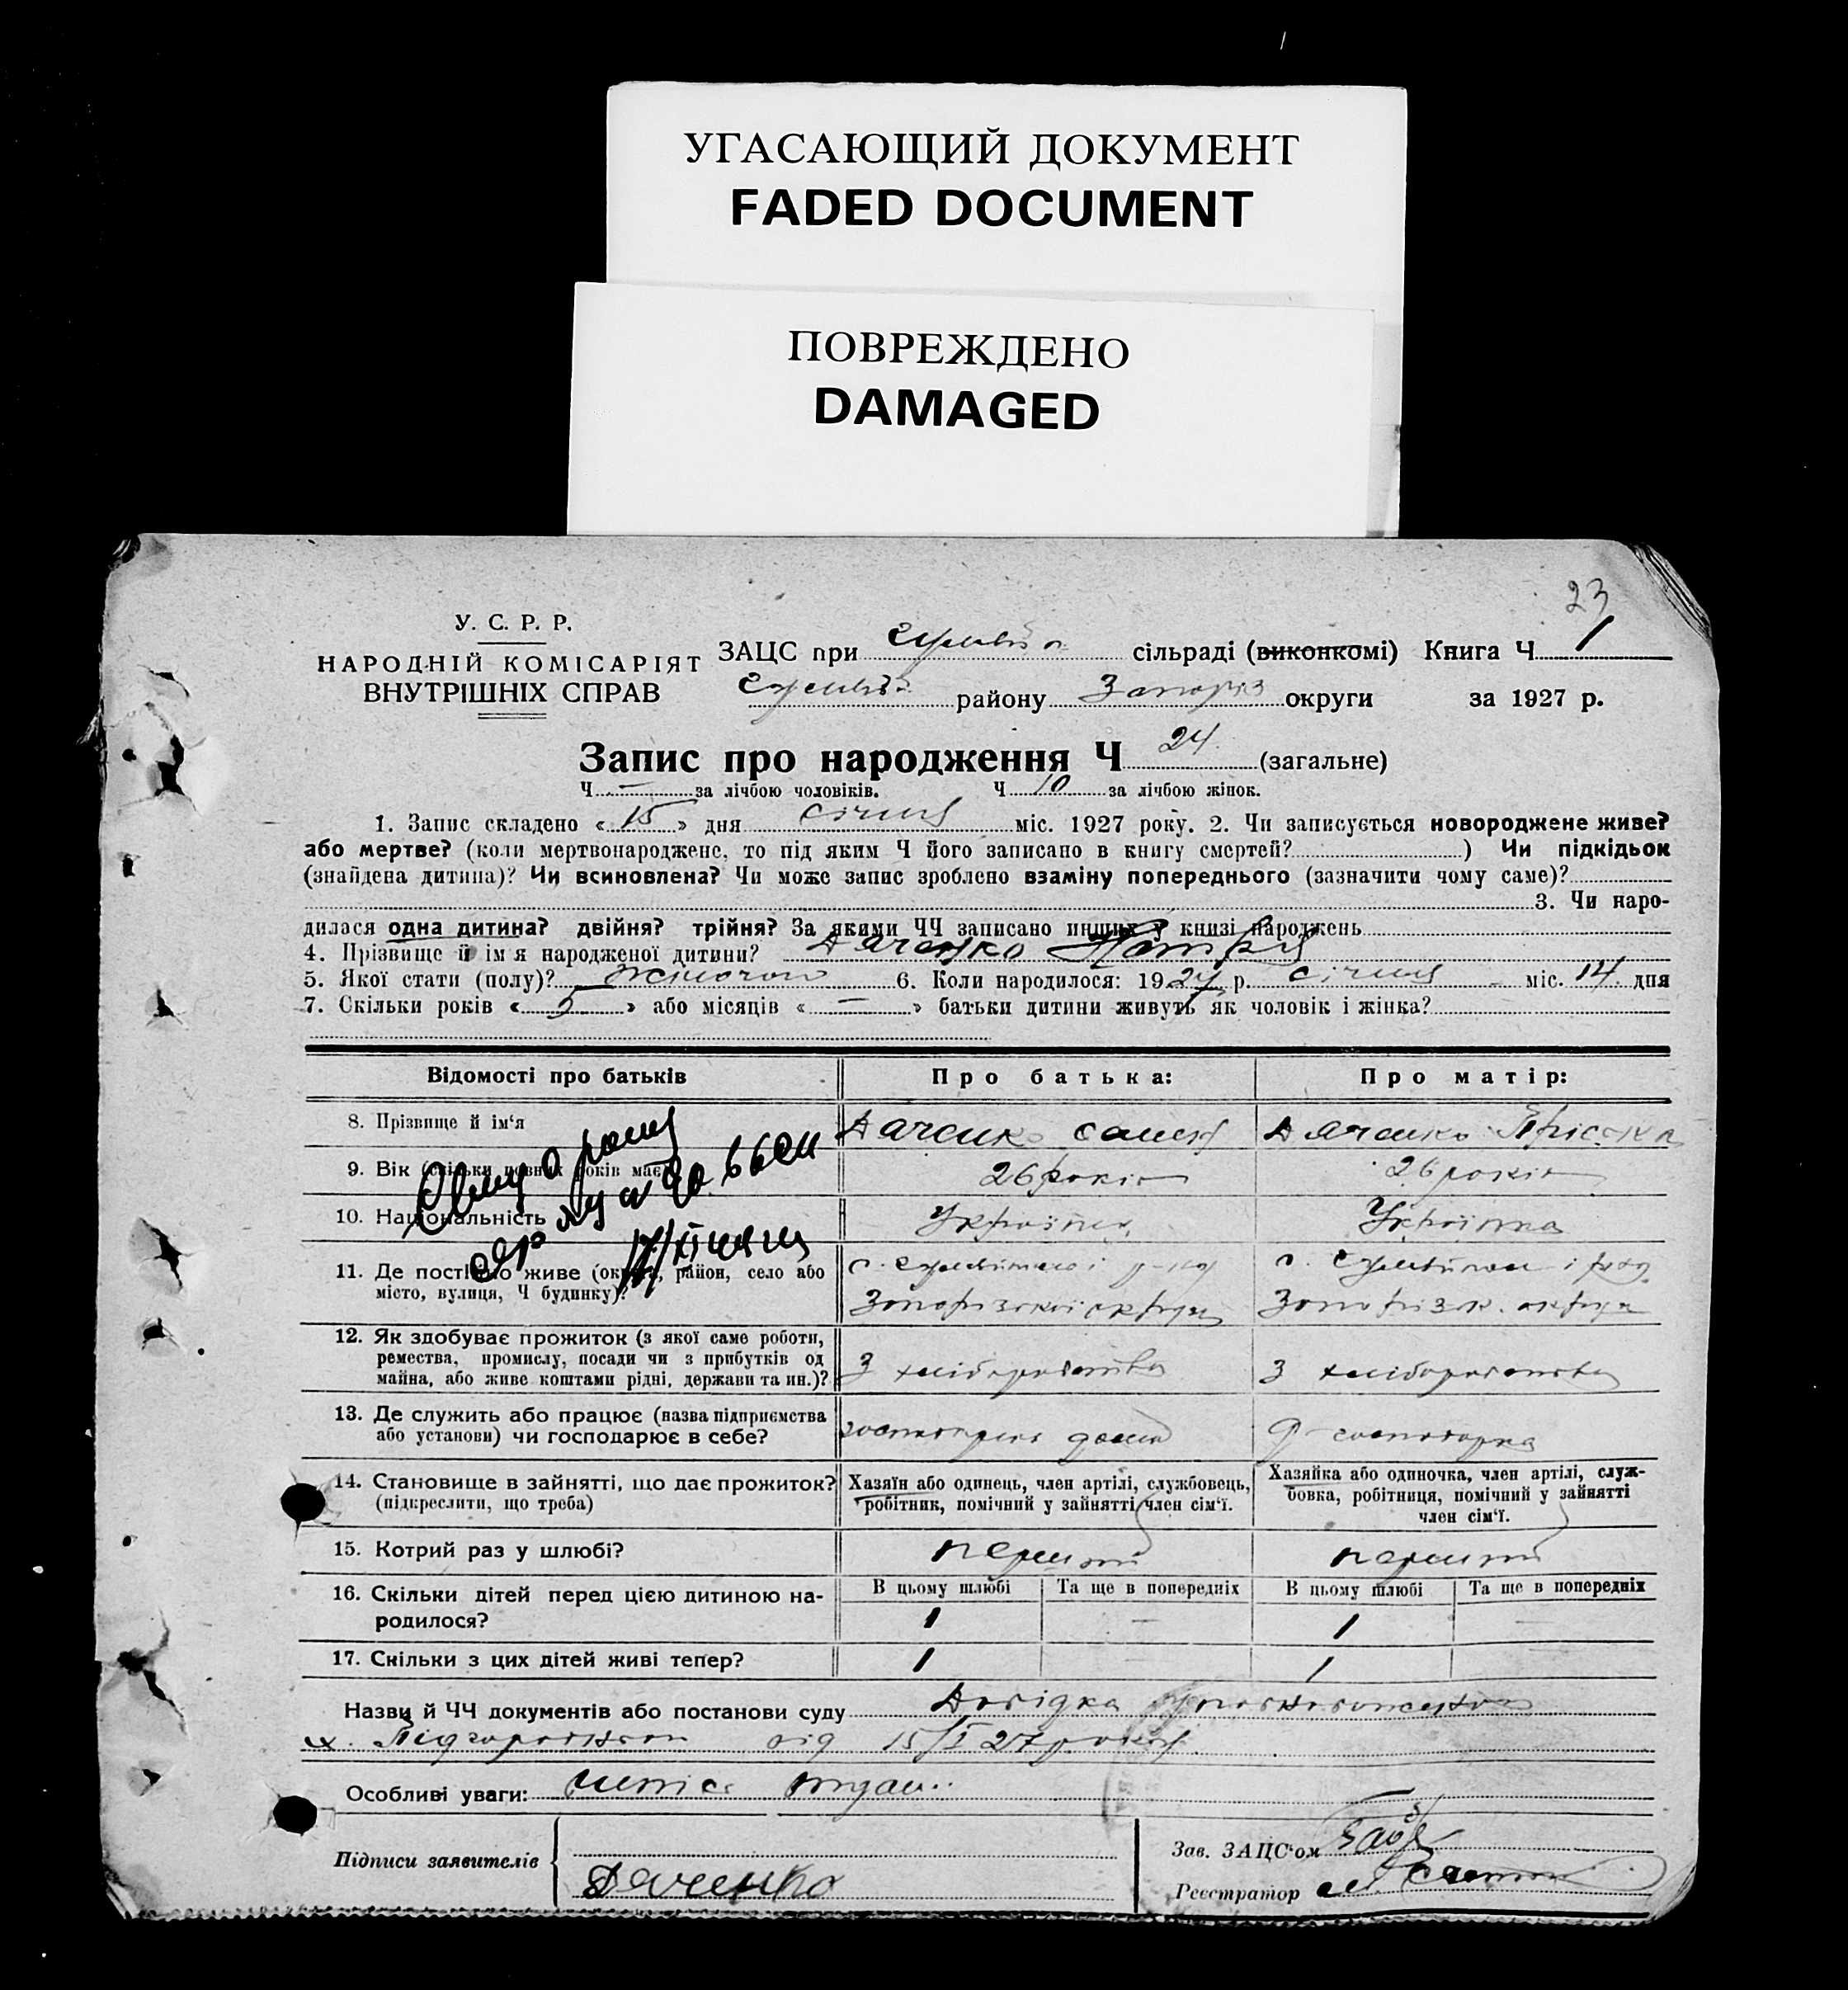 УГАСАЮЩИЙ ДОКУМЕНТ
FADED DOCUMENT
ПОВРЕЖДЕНО
DAMAGED
23
У. С. Р. Р.
НАРОДНІЙ КОМІСАРІЯТ
ВНУТРІШНІХ СПРАВ
ЗАЦС при сільраді (виконкомі) Книга Ч 1
району Запоріз округи за 1927 р.
Запис про народження Ч 24 (загальне)
Ч — за лічбою чоловіків. Ч 10 за лічбою жінок.
1. Запис складено « 15 » дня січня міс. 1927 року. 2. Чи записується новороджене живе?
або мертве? (коли мертвонароджене, то під яким Ч його записано в книгу смертей? ) Чи підкідьок
(знайдена дитина)? Чи всиновлена? Чи може запис зроблено взаміну попереднього (зазначити чому саме)?
3. Чи наро-
дилася одна дитина? двійня? трійня? За якими ЧЧ записано инших у книзі народжень
4. Прізвище й ім'я народженої дитини? Дяченко
5. Якої стати (полу)? жіночої 6. Коли народилося: 1927 р. січня міс. 14 дня
7. Скільки років « 5 » або місяців « — » батьки дитини живуть як чоловік і жінка?
Відомості про батьків
Про батька:
Про матір:
8. Прізвище й ім'я
Дяченко
Дяченко Пріська
9. Вік (скільки повних років має)
26 років
26 років
10. Національність
Українка
11. Де постійно живе (округа, район, село або
місто, вулиця, Ч будинку)?
Запорізької округи
Запорізьк. округи
12. Як здобуває прожиток (з якої саме роботи,
ремества, промислу, посади чи з прибутків од
майна, або живе коштами рідні, держави та ин.)?
З хліборобства
З хліборобства
13. Де служить або працює (назва підприємства
або установи) чи господарює в себе?
14. Становище в зайнятті, що дає прожиток?
(підкреслити, що треба)
Хазяїн або одинець, член артілі, службовець,
робітник, помічний у зайнятті член сім'ї.
Хазяйка або одиночка, член артілі, служ-
бовка, робітниця, помічний у зайнятті
член сім'ї.
15. Котрий раз у шлюбі?
перший
перший
16. Скільки дітей перед цією дитиною на-
родилося?
В цьому шлюбі
Та ще в попередніх
В цьому шлюбі
Та ще в попередніх
1
—
1
—
17. Скільки з цих дітей живі тепер?
1
1
Назви й ЧЧ документів або постанови суду Довідка
від 15/I 27 року
Особливі уваги:
Підписи заявителів
Дяченко
Зав. ЗАЦС'ом
Реєстратор